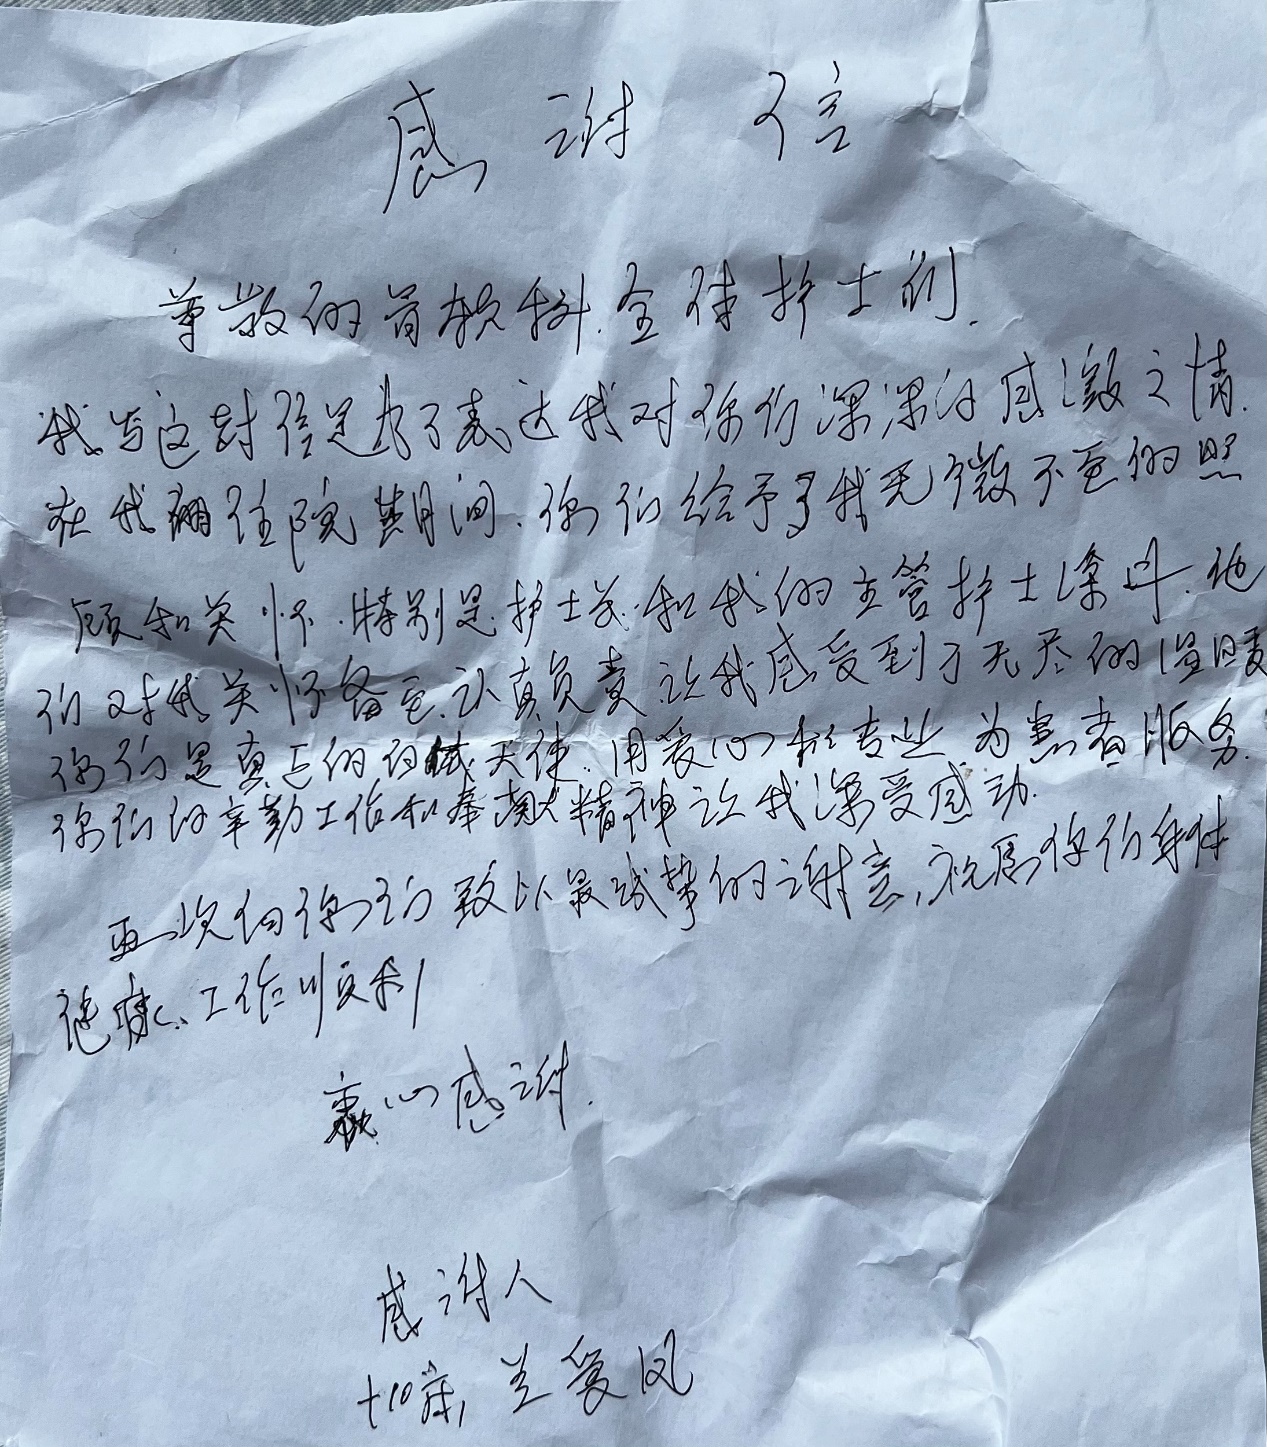 感谢信
尊敬的脊柱科.全体护士们.
我写这封信是为了表达我对你们深深的感激之情.
在我住院期间.你们给予了我无微不至的照
顾和关怀.特别是护士长.和我的主管护士.他
们对我关怀备至.认真负责让我感受到了无尽的温暖
你们是真正的白衣天使.用爱心和专业为患者服务.
你们的辛勤工作和奉献精神让我深受感动.
再次向你们致以最诚挚的谢意,祝愿你们身体
健康、工作顺利
衷心感谢.
感谢人
+10床, 兰爱凤